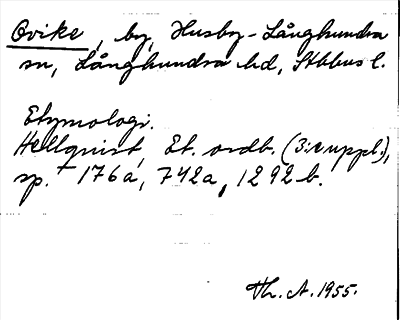 Ovike, by, Husby-Långhundra
sn, Långhundra hd, Sthlms l.
Etymologi.
Hellquist, Et. ordb. (3:e uppl.),
sp. 176a, 742a, 1292b.
Th. A. 1955.